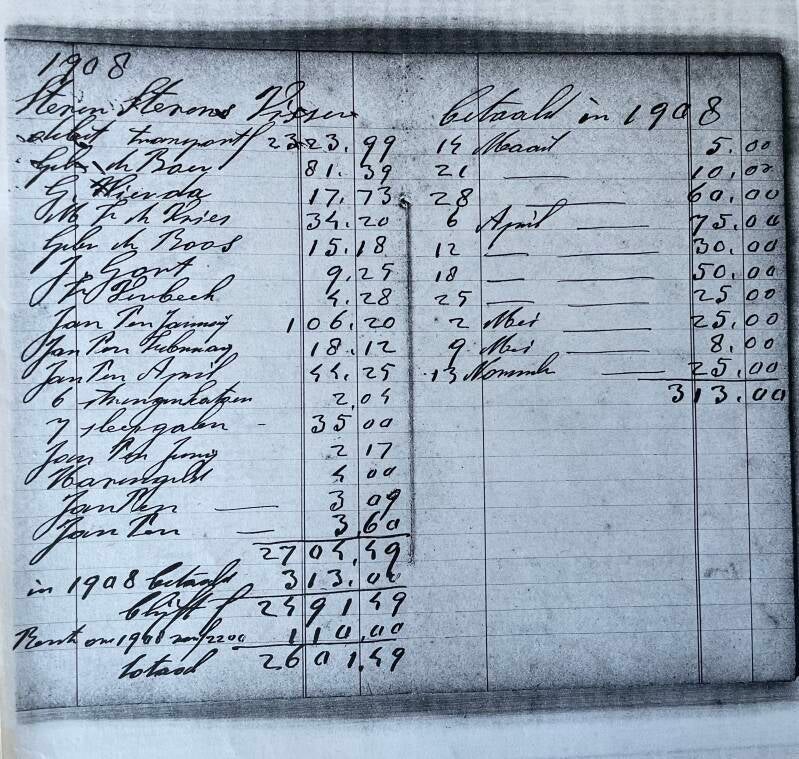 1908
Steven Stevens Visser
debet transport f 2323.99
Gebr de Boer 81.39
G. 17.73
M Fr de Vries 34.20
Gebr de Boos 15.18
J. Gort 9.25
4.28
Jan Pen Januarij 106.20
Jan Pen Februarij 18.12
Jan Pen April 44.25
6 2.04
7 sleepgalen 35 00
Jan Pen 2 17
Harengeld 4 00
Jan Pen — 3 09
Jan Pen — 3.60
2704.49
in 1908 betaald 313.00
Blijft f 2491.49
Rente over 1908 van f 2200 110.00
totaal 2601.49
betaald in 1908
14 Maart 5.00
21 — 10.00
28 — 60.00
6 April — 75.00
12 — — 30.00
18 — — 50.00
25 — — 25 00
2 Mei — 25.00
9 Mei — 8.00
13 — 25.00
313.00